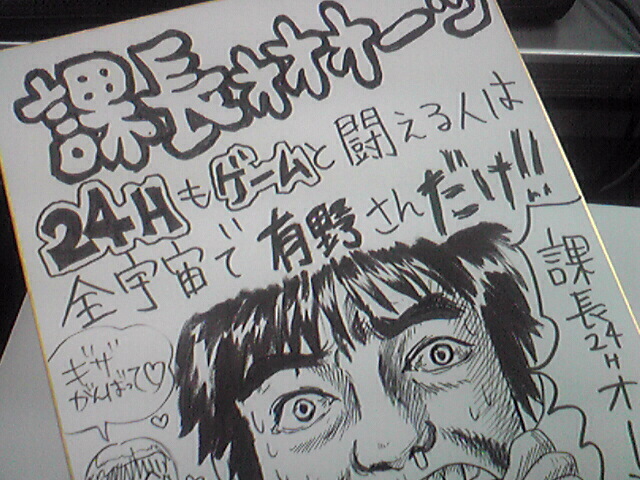 課長オオオーッ
24Hもゲームと闘える人は
全宇宙で有野さんだけ!!
ギザ
がんばって♡
課長24Hオー